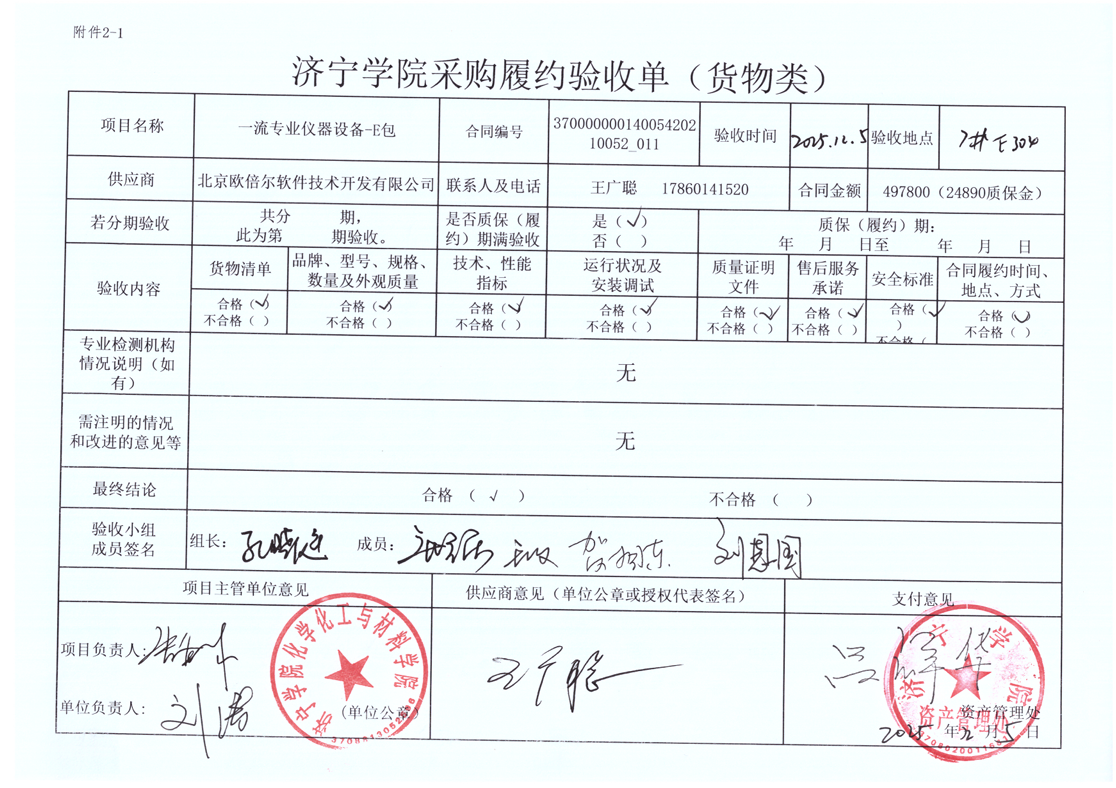 附件2-1
济宁学院采购履约验收单（货物类）
项目名称
一流专业仪器设备-E包
合同编号
370000000140054202
10052_011
验收时间
2025.12.5
验收地点
7# E304
供应商
北京欧倍尔软件技术开发有限公司
联系人及电话
王广聪 17860141520
合同金额
497800（24890质保金）
若分期验收
共分 期，
此为第 期验收。
是否质保（履
约）期满验收
是（✓）
否（ ）
质保（履约）期：
年 月 日至 年 月 日
验收内容
货物清单
品牌、型号、规格、
数量及外观质量
技术、性能
指标
运行状况及
安装调试
质量证明
文件
售后服务
承诺
安全标准
合同履约时间、
地点、方式
合格（✓）
不合格（ ）
合格（✓）
不合格（ ）
合格（✓）
不合格（ ）
合格（✓）
不合格（ ）
合格（✓）
不合格（ ）
合格（✓）
不合格（ ）
合格（✓
）
不合格（
合格（✓）
不合格（ ）
专业检测机构
情况说明（如
有）
无
需注明的情况
和改进的意见等
无
最终结论
合格 （ ✓ ）
不合格 （ ）
验收小组
成员签名
组长：
成员：
刘恩国
项目主管单位意见
供应商意见（单位公章或授权代表签名）
支付意见
项目负责人:
单位负责人:
（单位公章）
济宁学院化学化工与材料学院
王广聪
济宁学院
资产管理处
资产管理处
2025年12月5日